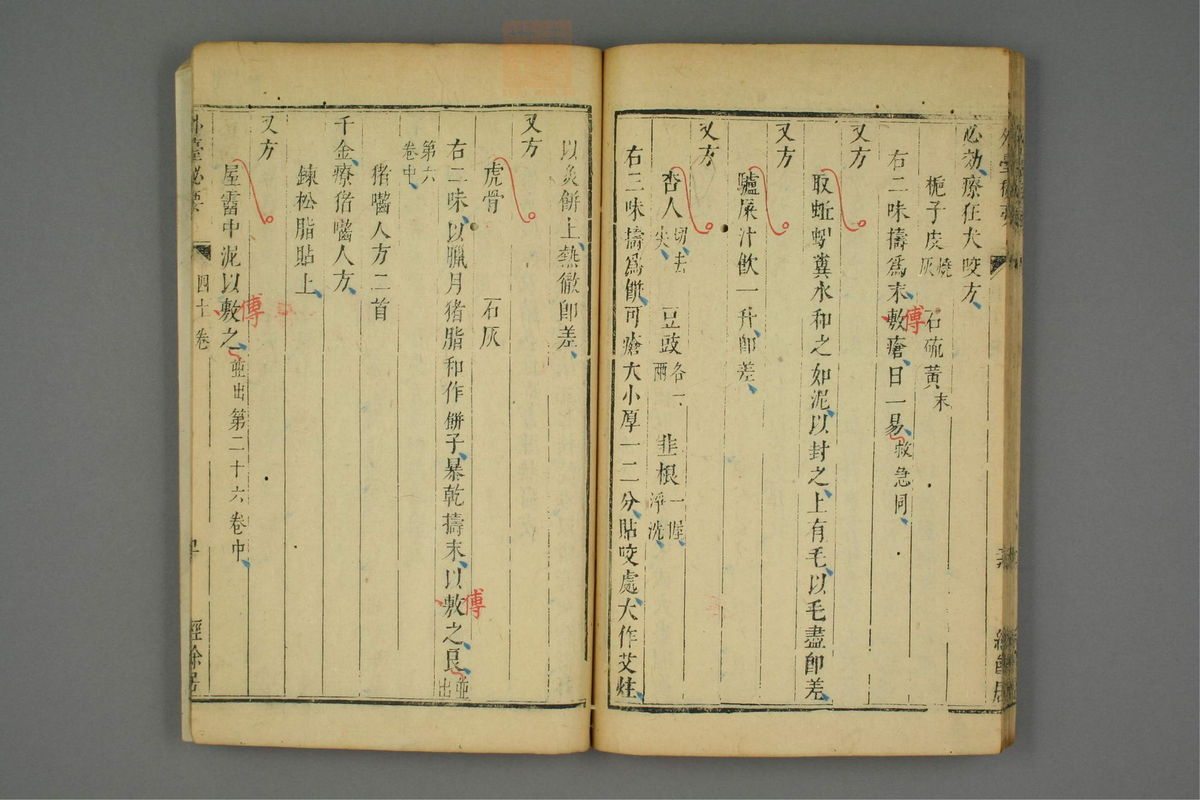 必効療狂犬咬方
梔子皮燒灰 石硫黃末
右二味擣為末敷瘡日一易救急同
傅
又方
取蚯蚓糞水和之如泥以封之上有毛以毛盡即差
又方
驢屎汁飲一升即差
又方
杏人切去尖 豆豉各一兩 韭根一握淨洗
右三味擣為餅可瘡大小厚一二分貼咬處大作艾炷
以灸餅上熱徹即差
又方
虎骨 石灰
右二味以臘月猪脂和作餅子暴乾擣末以敷之良並出
傅
第六卷中
猪嚙人方二首
千金療猪嚙人方
鍊松脂貼上
又方
屋霤中泥以敷之並出第二十六卷中
傅
外臺秘要
四十卷
經餘居